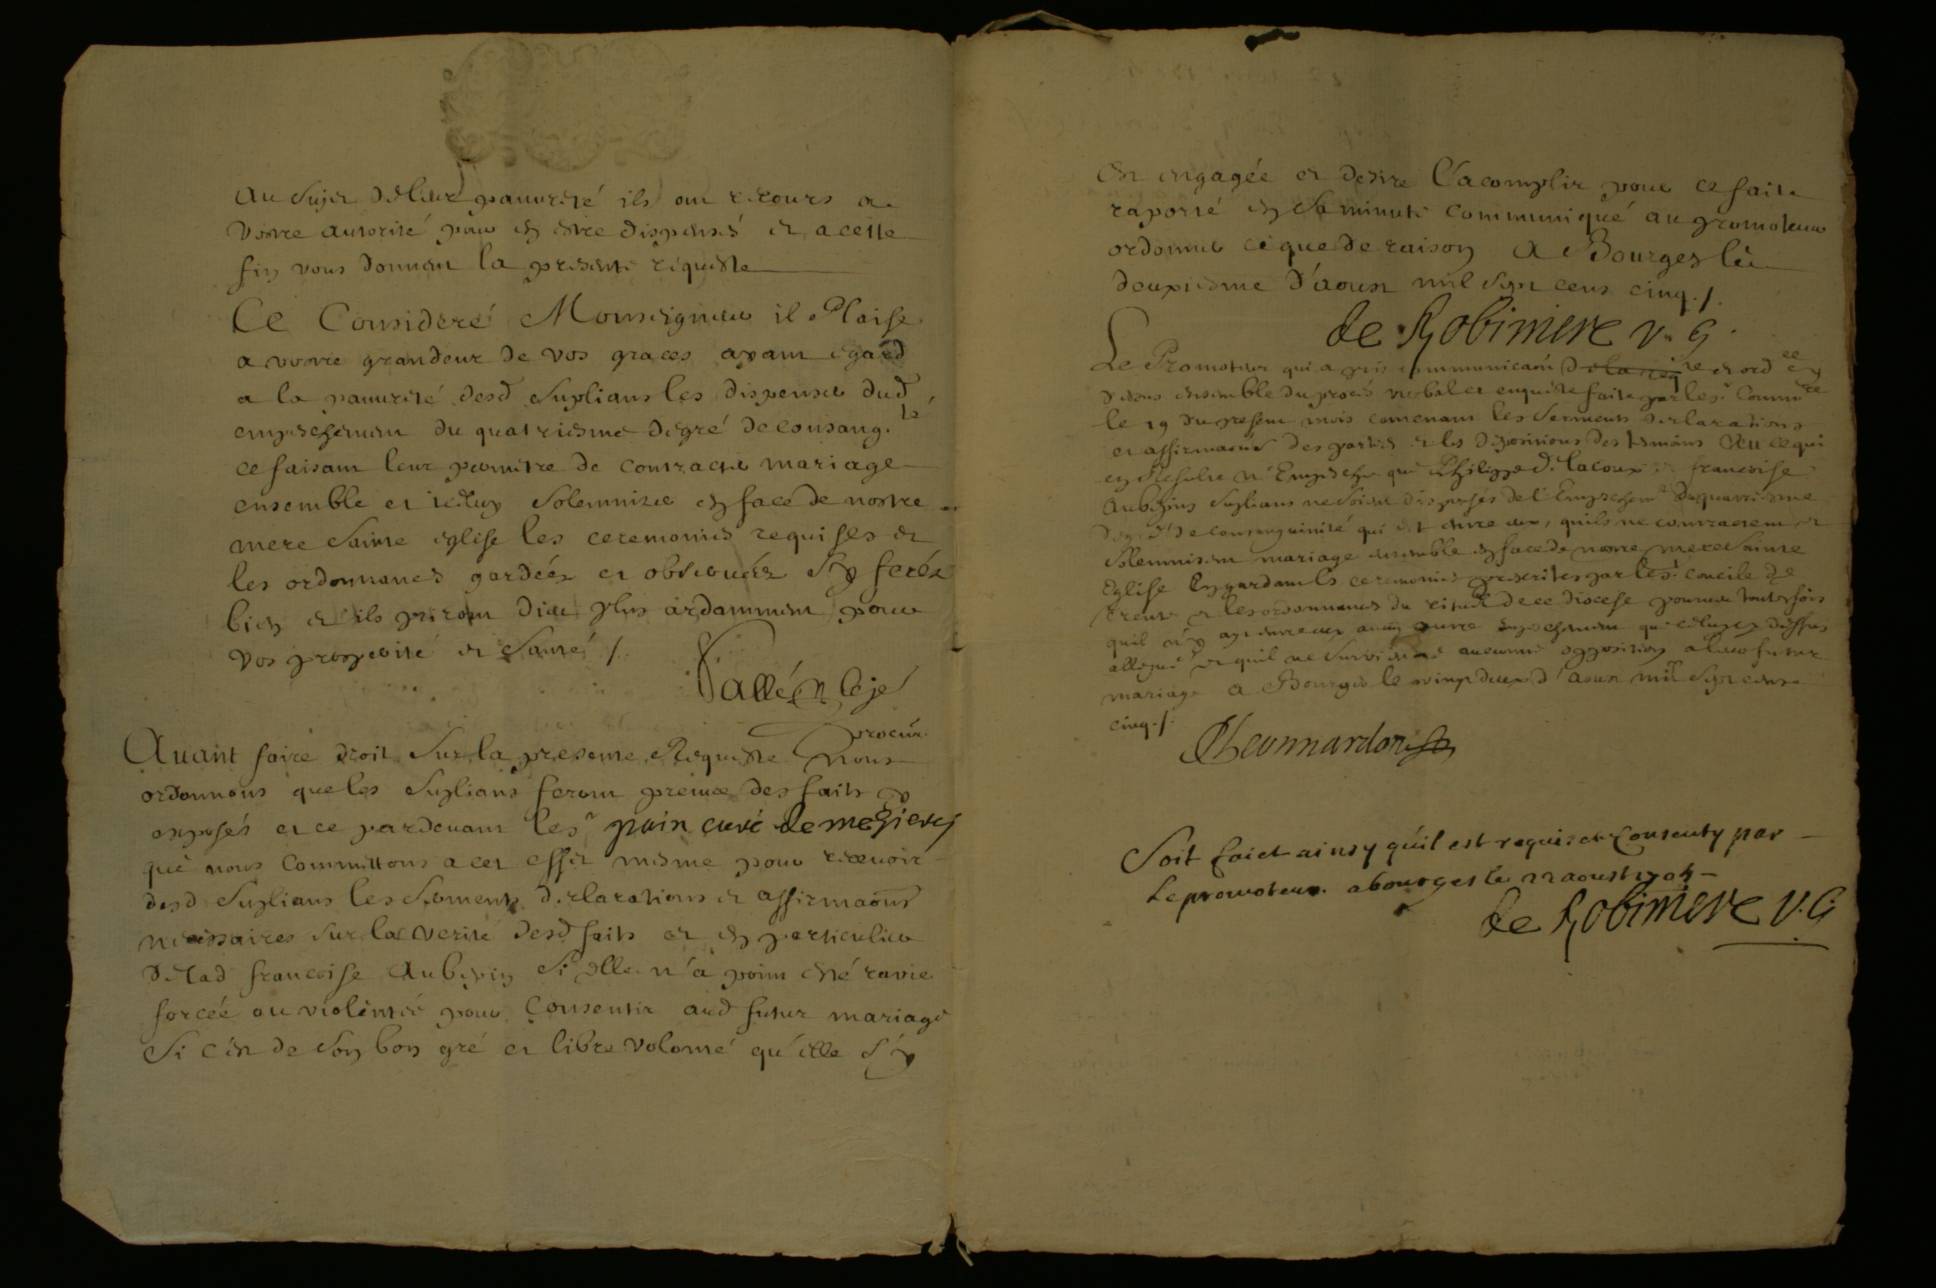 au sujet de leur pauvreté ils ont recours a
vostre autorité pour en estre dispensés et a cette
fin vous donnent la presente requeste
Ce Consideré Monseigneur il Plaise
a vostre grandeur de vos graces ayant egard
a la pauvreté desd suplians les dispenser dud
empeschement du quatriesme degré de consang.té
ce faisant leur permetre de contracter mariage
ensemble et iceluy solemniser en face de nostre
mere Sainte eglise les ceremonies requises et
les ordonnances gardées et observées s'y ferés
bien et ils priront dieu plus ardamment pour
vos prosperité et santé /.
Vallé
procur.
Avant faire droit sur la presente Requeste Nous
ordonnons que les suplians feront preuve des faits y
exposés et ce pardevant le sr poin curé de mezieres
que nous committons a cet effet mesme pour recevoir
desd suplians les serments declarations et affirmaons
necessaires sur la verité desd faits et en particulier
de lad francoise Aubepin si elle n'a point esté ravie
forcée ou violentée pour Consentir aud futur mariage
Si c'est de son bon gré et libre volonté qu'elle s'y
est engagée et desire l'acomplir pour ce fait
raporté en sa minute communiqué au promoteur
ordonner ce que de raison A Bourges le
deuxiesme d'aoust mil sept cens cinq./.
de Robiniere V. G.
Le Promoteur qui a pris communicaon de la req.te et ord.ce cy
dessus ensemble du procés verbal et enqueste faite par le sr Comm.re
le 19 du present mois contenant les serments declarations
et affirmaons des parties et les depositions des temoins Veu ce qui
en Resulte N'Empesche que Philippe de lacoux et francoise
Aubepins suplians ne soient dispensés de l'Empeschemt du quatriesme
degré de consanguinité qui est entre eux, quils ne contractent et
solemnisent mariage ensemble en face de nostre mere sainte
Eglise En gardant les ceremonies prescrites par le st concile de
trente et les ordonnances du rituel de ce diocese pourveu toutefois
quil n'y ayt entre eux aucun autre empeschement que celuy cy dessus
allegué et quil ne survienne aucunne opposition a leur futur
mariage a Bourges le vingt deux d'aoust mil sept cens
cinq./.
Leonnardon
Soit faict ainsy qu'il est requis et Consenty par
Le promoteur a bourges le 22 aoust 1705
de Robiniere V. G.